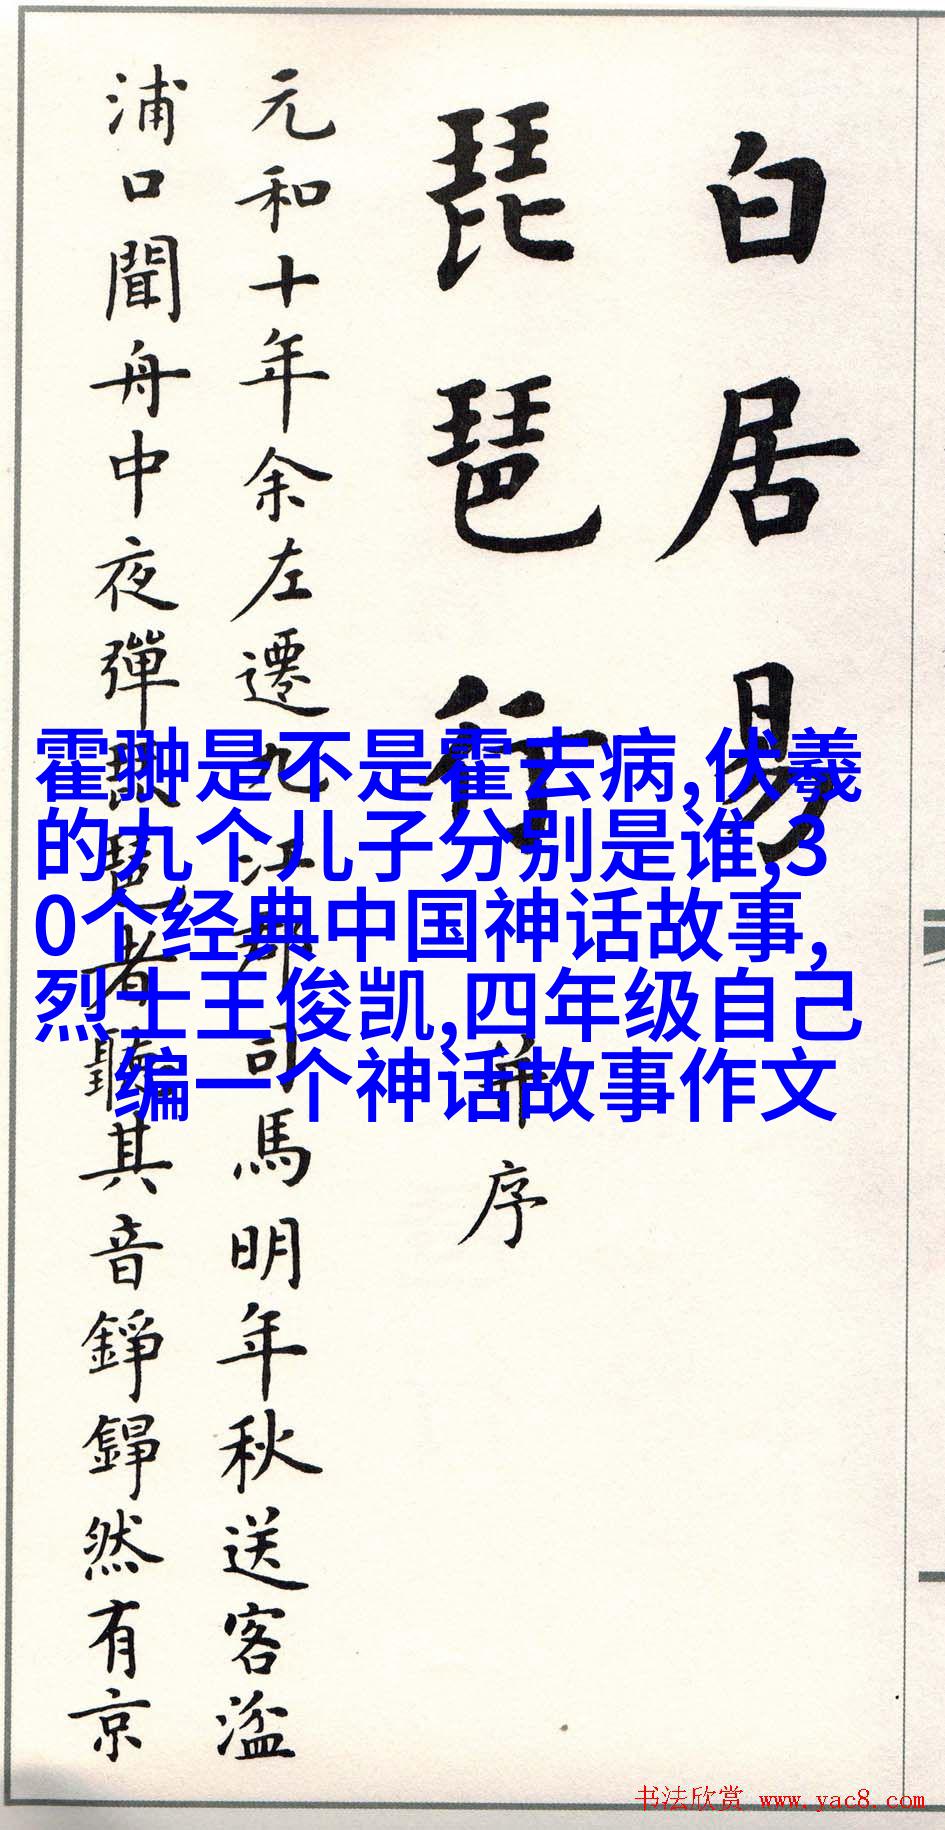 白居易
琵琶行
并序
元和十年余左遷九江郡司馬明年秋送客湓
浦口聞舟中夜彈琵琶者聽其音錚錚然有京
霍翀是不是霍去病,伏羲
的九个儿子分别是谁,3
0个经典中国神话故事,
烈士王俊凯,四年级自己
编一个神话故事作文
书法欣赏 www.yac8.com